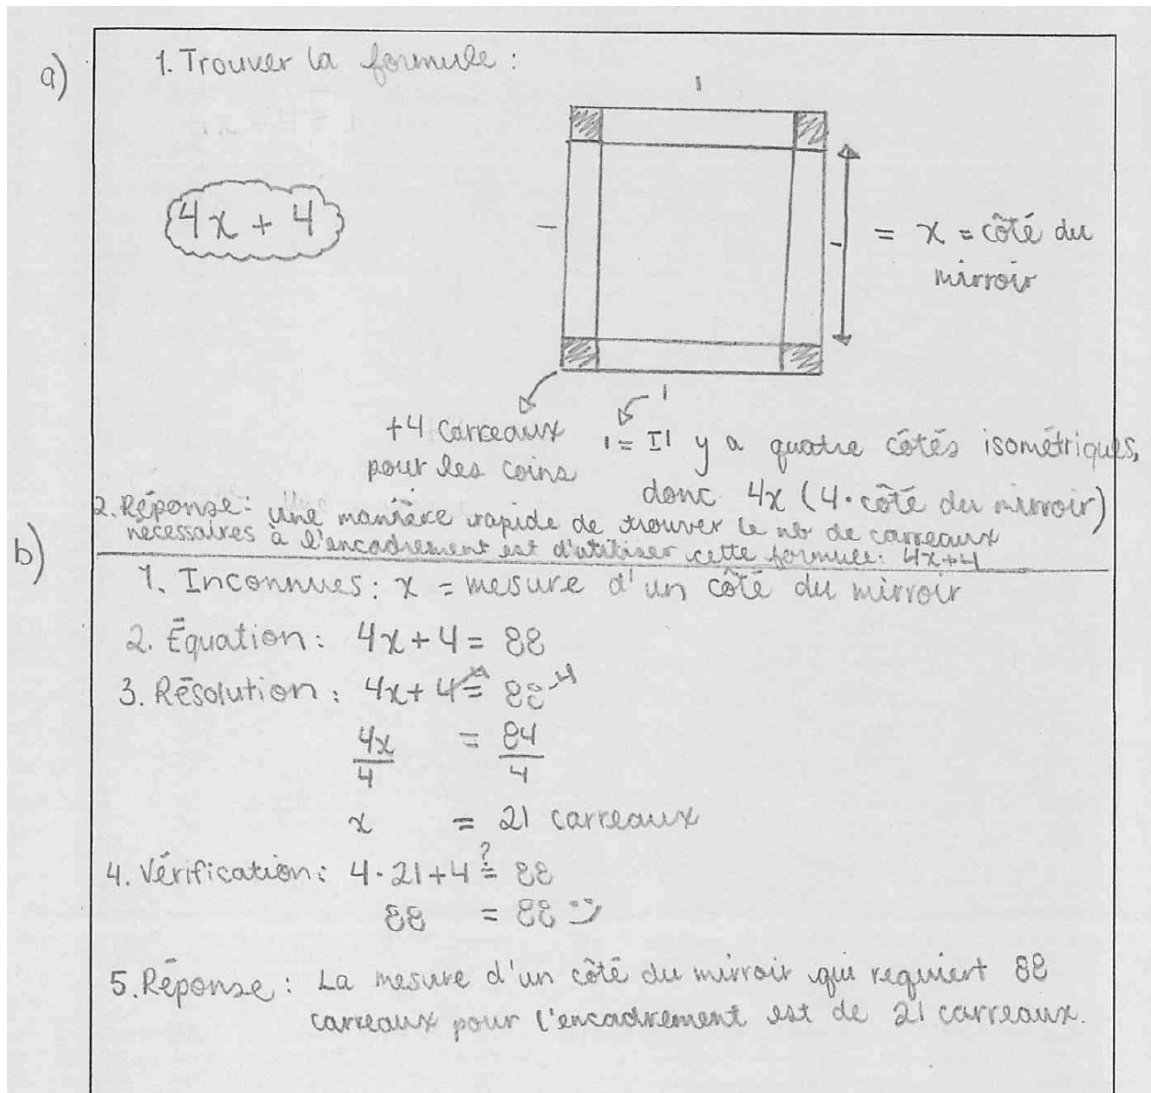 a)
1. Trouver la formule :
4x + 4
= x = côté du
mirroir
+4 carreaux
pour les coins
= Il y a quatre côtés isométriques,
donc 4x (4 · côté du mirroir)
2. Réponse : Une manière rapide de trouver le nb de carreaux
nécessaires à l'encadrement est d'utiliser cette formule: 4x+4
b)
1. Inconnues : x = mesure d'un côté du mirroir
2. Équation : 4x + 4 = 88
3. Résolution : 4x + 4 -4 = 88 -4
4x = 84
4 4
x = 21 carreaux
4. Vérification : 4 · 21 + 4 ?= 88
88 = 88 :)
5. Réponse : La mesure d'un côté du mirroir qui requiert 88
carreaux pour l'encadrement est de 21 carreaux.